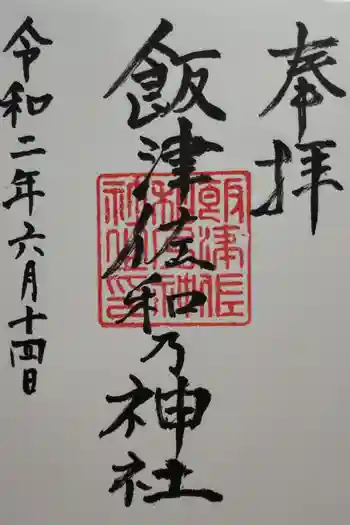 奉拝
飯津佐和乃神社
令和二年六月十四日